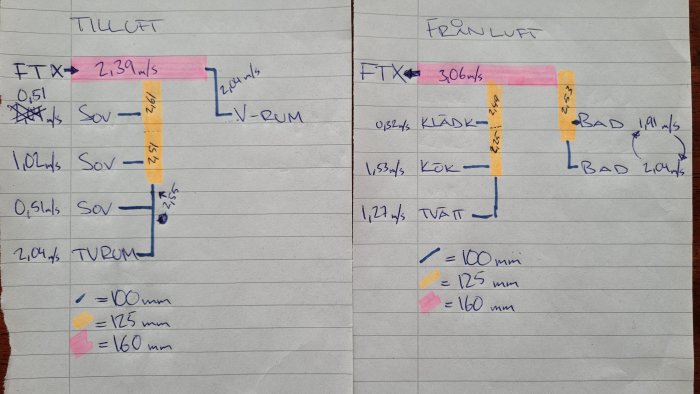 TILLUFT
FTX → 2,39 m/s
2,04 m/s
V-RUM
0,51
m/s SOV
2,61
1,02 m/s SOV
0,51 m/s SOV
2,55
2,04 m/s TVRUM
= 100 mm
= 125 mm
= 160 mm
FRÅNLUFT
FTX ← 3,06 m/s
2,53
0,32 m/s KLÄDK
BAD 1,91 m/s
1,53 m/s KÖK
BAD 2,04 m/s
1,27 m/s TVÄTT
= 100 mm
= 125 mm
= 160 mm